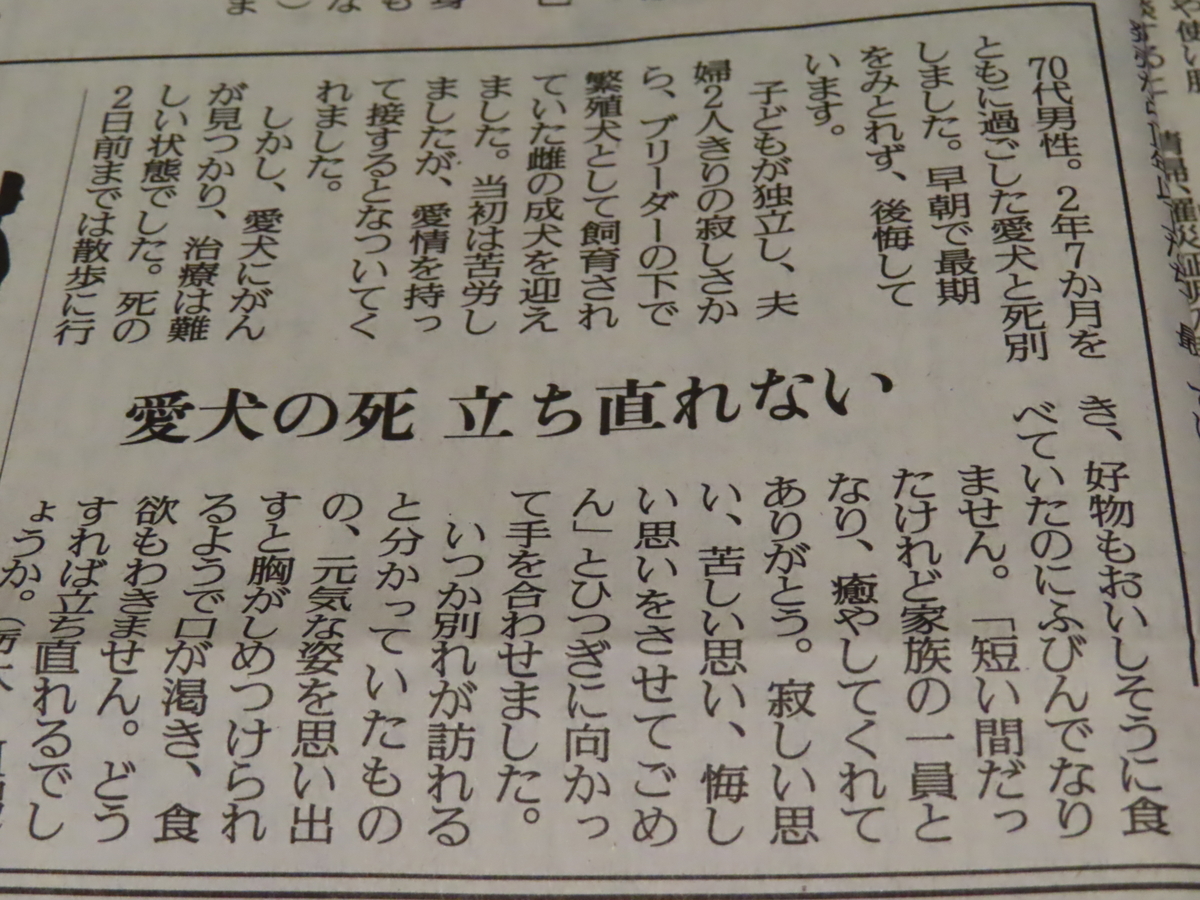 愛犬の死 立ち直れない
70代男性。2年7か月を
ともに過ごした愛犬と死別
しました。早朝で最期
をみとれず、後悔して
います。
子どもが独立し、夫
婦2人きりの寂しさか
ら、ブリーダーの下で
繁殖犬として飼育され
ていた雌の成犬を迎え
ました。当初は苦労し
ましたが、愛情を持っ
て接するとなついてく
れました。
しかし、愛犬にがん
が見つかり、治療は難
しい状態でした。死の
2日前までは散歩に行
き、好物もおいしそうに食
べていたのにふびんでなり
ません。「短い間だっ
たけれど家族の一員と
なり、癒やしてくれて
ありがとう。寂しい思
い、苦しい思い、悔し
い思いをさせてごめ
ん」とひつぎに向かっ
て手を合わせました。
いつか別れが訪れる
と分かっていたもの
の、元気な姿を思い出
すと胸がしめつけられ
るようで口が渇き、食
欲もわきません。どう
すれば立ち直れるでし
ょうか。